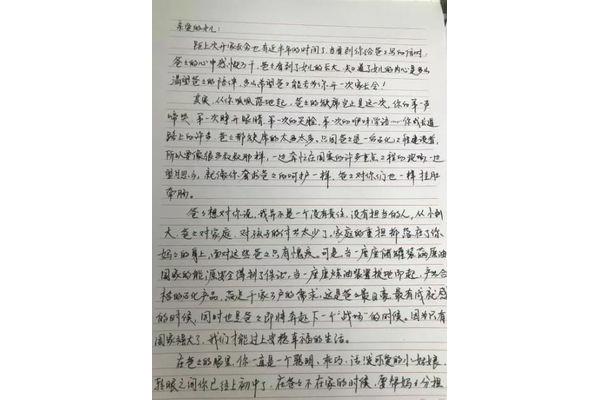 亲爱的女儿:
距上次开家长会也有近半年的时间了,当看到你给爸爸写的信时,
爸爸的心中感慨万千,爸爸看到了女儿的长大,知道了女儿的内心是多么
渴望爸爸的陪伴,多么希望爸爸能去为你开一次家长会!
其实,从你呱呱落地起,爸爸的缺席岂止是这一次,你的第一声
啼哭、第一次睁开眼睛、第一次的笑脸、第一次的咿呀学语……你成长道
路上的许多爸爸都缺席的太多太多,只因爸爸是一名石化工程建设者,
所以要像很多叔叔那样,一边奔忙在国家的许多重点工程的现场,一边
思念,就像你需要爸爸的呵护一样,爸爸对你们也一样挂肚
牵肠。
爸爸想对你说,我并不是一个没有责任,没有担当的人,从小到
大,爸爸对家庭、对孩子的付出太少了,家庭的重担都落在了你
妈妈的身上,面对这些爸爸只有愧疚。可是,当一座座储罐装满原油
国家的能源安全得到了保证,当一座座炼油装置拔地而起,产出合
格的石化产品,满足千家万户的需求,这是爸爸最自豪、最有成就感
的时候,同时也是爸爸即将奔赴下一个“战场”的时候。因为只有
国家强大了,我们才能过上安稳幸福的生活。
在爸爸的眼里,你一直是一个聪明、乖巧、活泼可爱的小姑娘,
转眼之间你已经上初中了,在爸爸不在家的时候,要帮妈妈分担